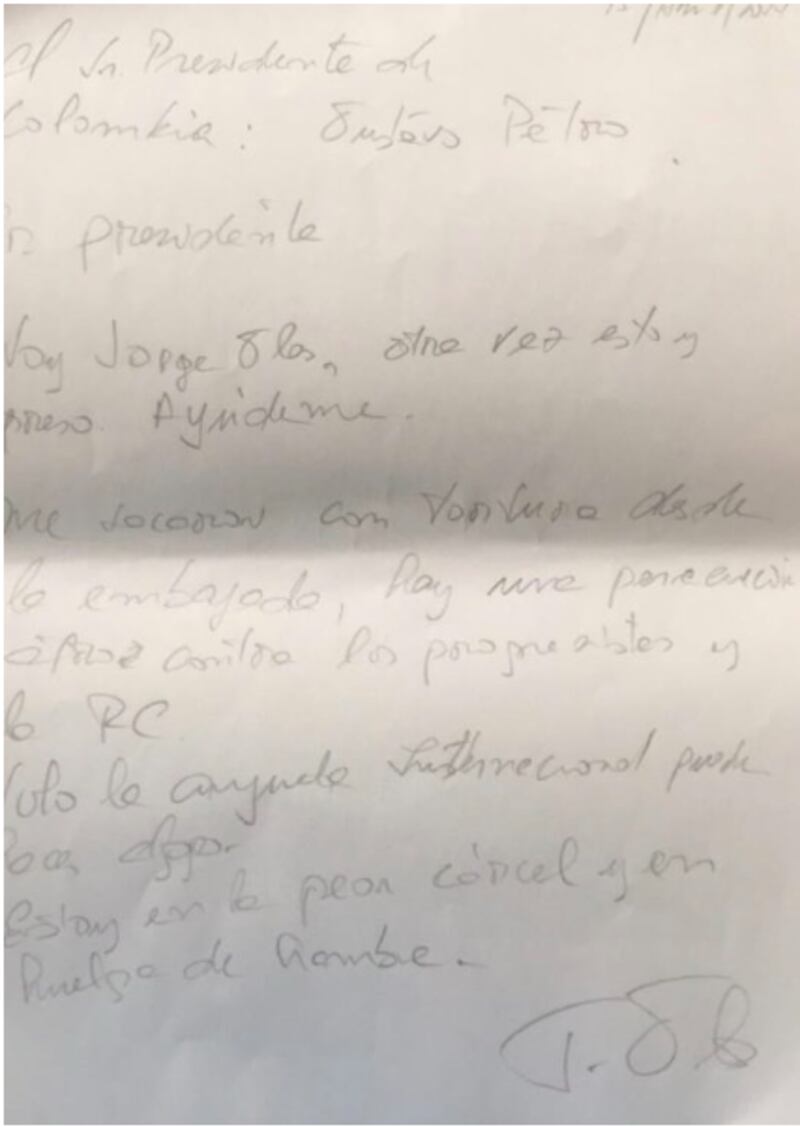 al Sr. Presidente de
Colombia: Gustavo Petro
Sr. presidente
Soy Jorge Glas, otra vez estoy
preso. Ayúdeme.
me sacaron con tortura desde
la embajada, hay una persecución
atroz contra los progresistas y
la RC
Solo la ayuda internacional puede
algo.
Estoy en la peor cárcel y en
huelga de hambre.
J. Glas